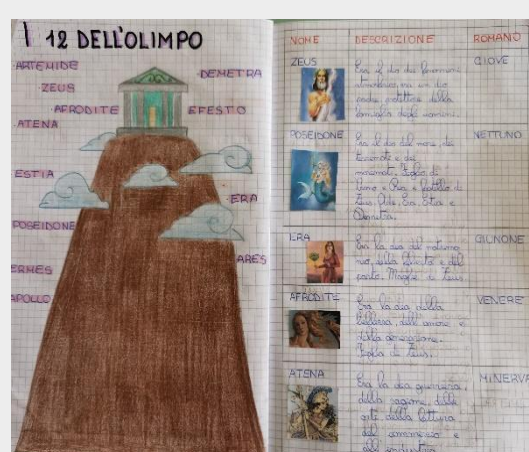 I 12 DELL'OLIMPO
ARTEMIDE
DEMETRA
ZEUS
AFRODITE
EFESTO
ATENA
ESTIA
ERA
POSEIDONE
ARES
ERMES
APOLLO
NOME DESCRIZIONE ROMANO
ZEUS
Era il dio dei fenomeni
atmosferici, un dio
padre protettore della
famiglia degli uomini.
GIOVE
POSEIDONE
Era il dio del mare, dei
terremoti e dei
maremoti. Figlio di
Crono e Rea e fratello di
Zeus, Ade, Era, Estia e
Demetra.
NETTUNO
ERA
Era la dea del matrimo
nio, della fedeltà e del
parto. Moglie di Zeus.
GIUNONE
AFRODITE
Era la dea della
bellezza, dell'amore e
della generazione.
Figlia di Zeus.
VENERE
ATENA
Era la dea guerriera,
della ragione, delle
arti, della
del commercio e
MINERVA